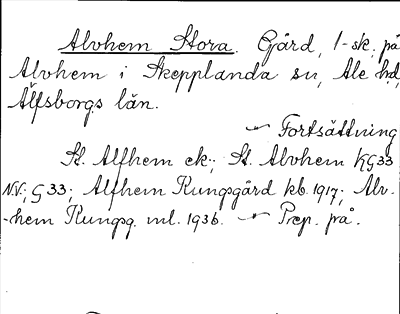 Alvhem Stora. Gård, 1-sk. på
Alvhem i Skepplanda sn, Ale hd,
Älfsborgs län.
~ Fortsättning
St. Alfhem ek.; St. Alvhem KG33
NV.; G33; Alfhem Kungsgård kb. 1917; Alv-
-hem Kungsg. ml. 1936. ~ Prep. på.